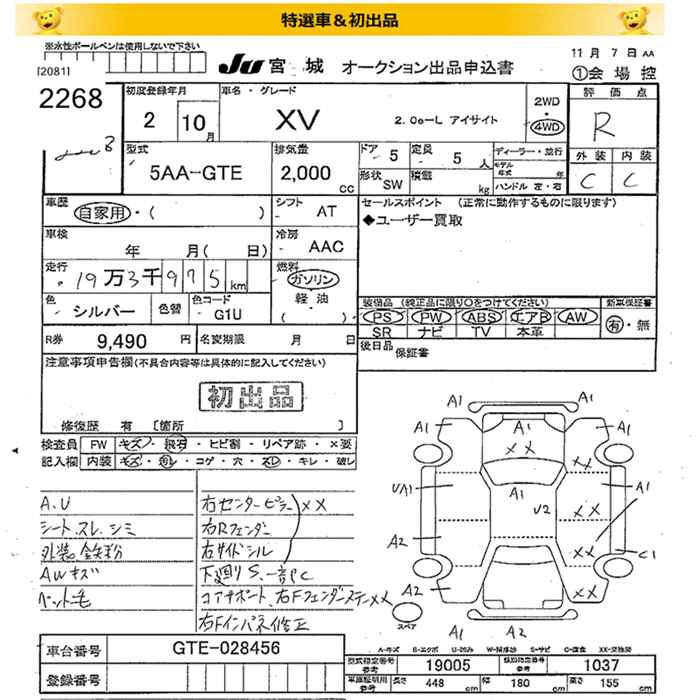 特選車＆初出品
※水性ボールペンは使用しないで下さい
[2081]
JU 宮城 オークション出品申込書
11月 7日 AA
①会場控
2268
初度登録年月
2 10月
車名・グレード
XV
2.0e-L アイサイト
2WD
4WD
評価点
R
外装 内装
C C
型式
5AA-GTE
排気量
2,000 cc
ドア 5
定員 5 人
形状 SW
積載 kg
ディーラー・並行
モデル年式 年
ハンドル 左・右
車歴
自家用・( )
シフト AT
セールスポイント (正常に動作するものに限ります)
◆ユーザー買取
車検
年 月( 日)
冷房 AAC
走行
19万3千975km
燃料
ガソリン
軽油
( )
色 シルバー
色替
色コード G1U
装備品 (純正品に限り○をつけてください)
PS PW ABS エアB AW
SR ナビ TV 本革
新車保証書
有・無
R券 9,490 円
名変期限 月 日
後日品 保証書
注意事項申告欄(不具合内容等は具体的に記入してください)
初出品
修復歴 有 [箇所 ]
検査員記入欄
FW キズ・飛石・ヒビ割・リペア跡・×要
内装 キズ・汚レ・コゲ・穴・スレ・キレ・破レ
A.U
シートスレ、シミ
外装鉄粉
AWキズ
ペット毛
右センターピラー XX
右Rフェンダー
右サイドシル
下廻りS、一部C
コアサポート、右Fフェンダーステー XX
右Fインパネ修正
A1
A1 A1
A1 A1
XX
XX
UA1
A1
U2
XX
A1
A2
XX
C1
A2
XX
A1 A2
スペア
A-キズ E-エクボ U-凹み W-補修跡 S-サビ C-腐食 XX-交換済
車台番号 GTE-028456
登録番号
型式指定番号参考 19005
類別指定番号参考 1037
車庫証明用参考 長さ 448 cm 幅 180 cm 高さ 155 cm